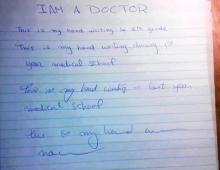 I AM A DOCTOR
This is my hand writing in 8th grade
This is my hand writing during 1st
year medical school
This is my hand writing - last year
medical school
this is my hand
now